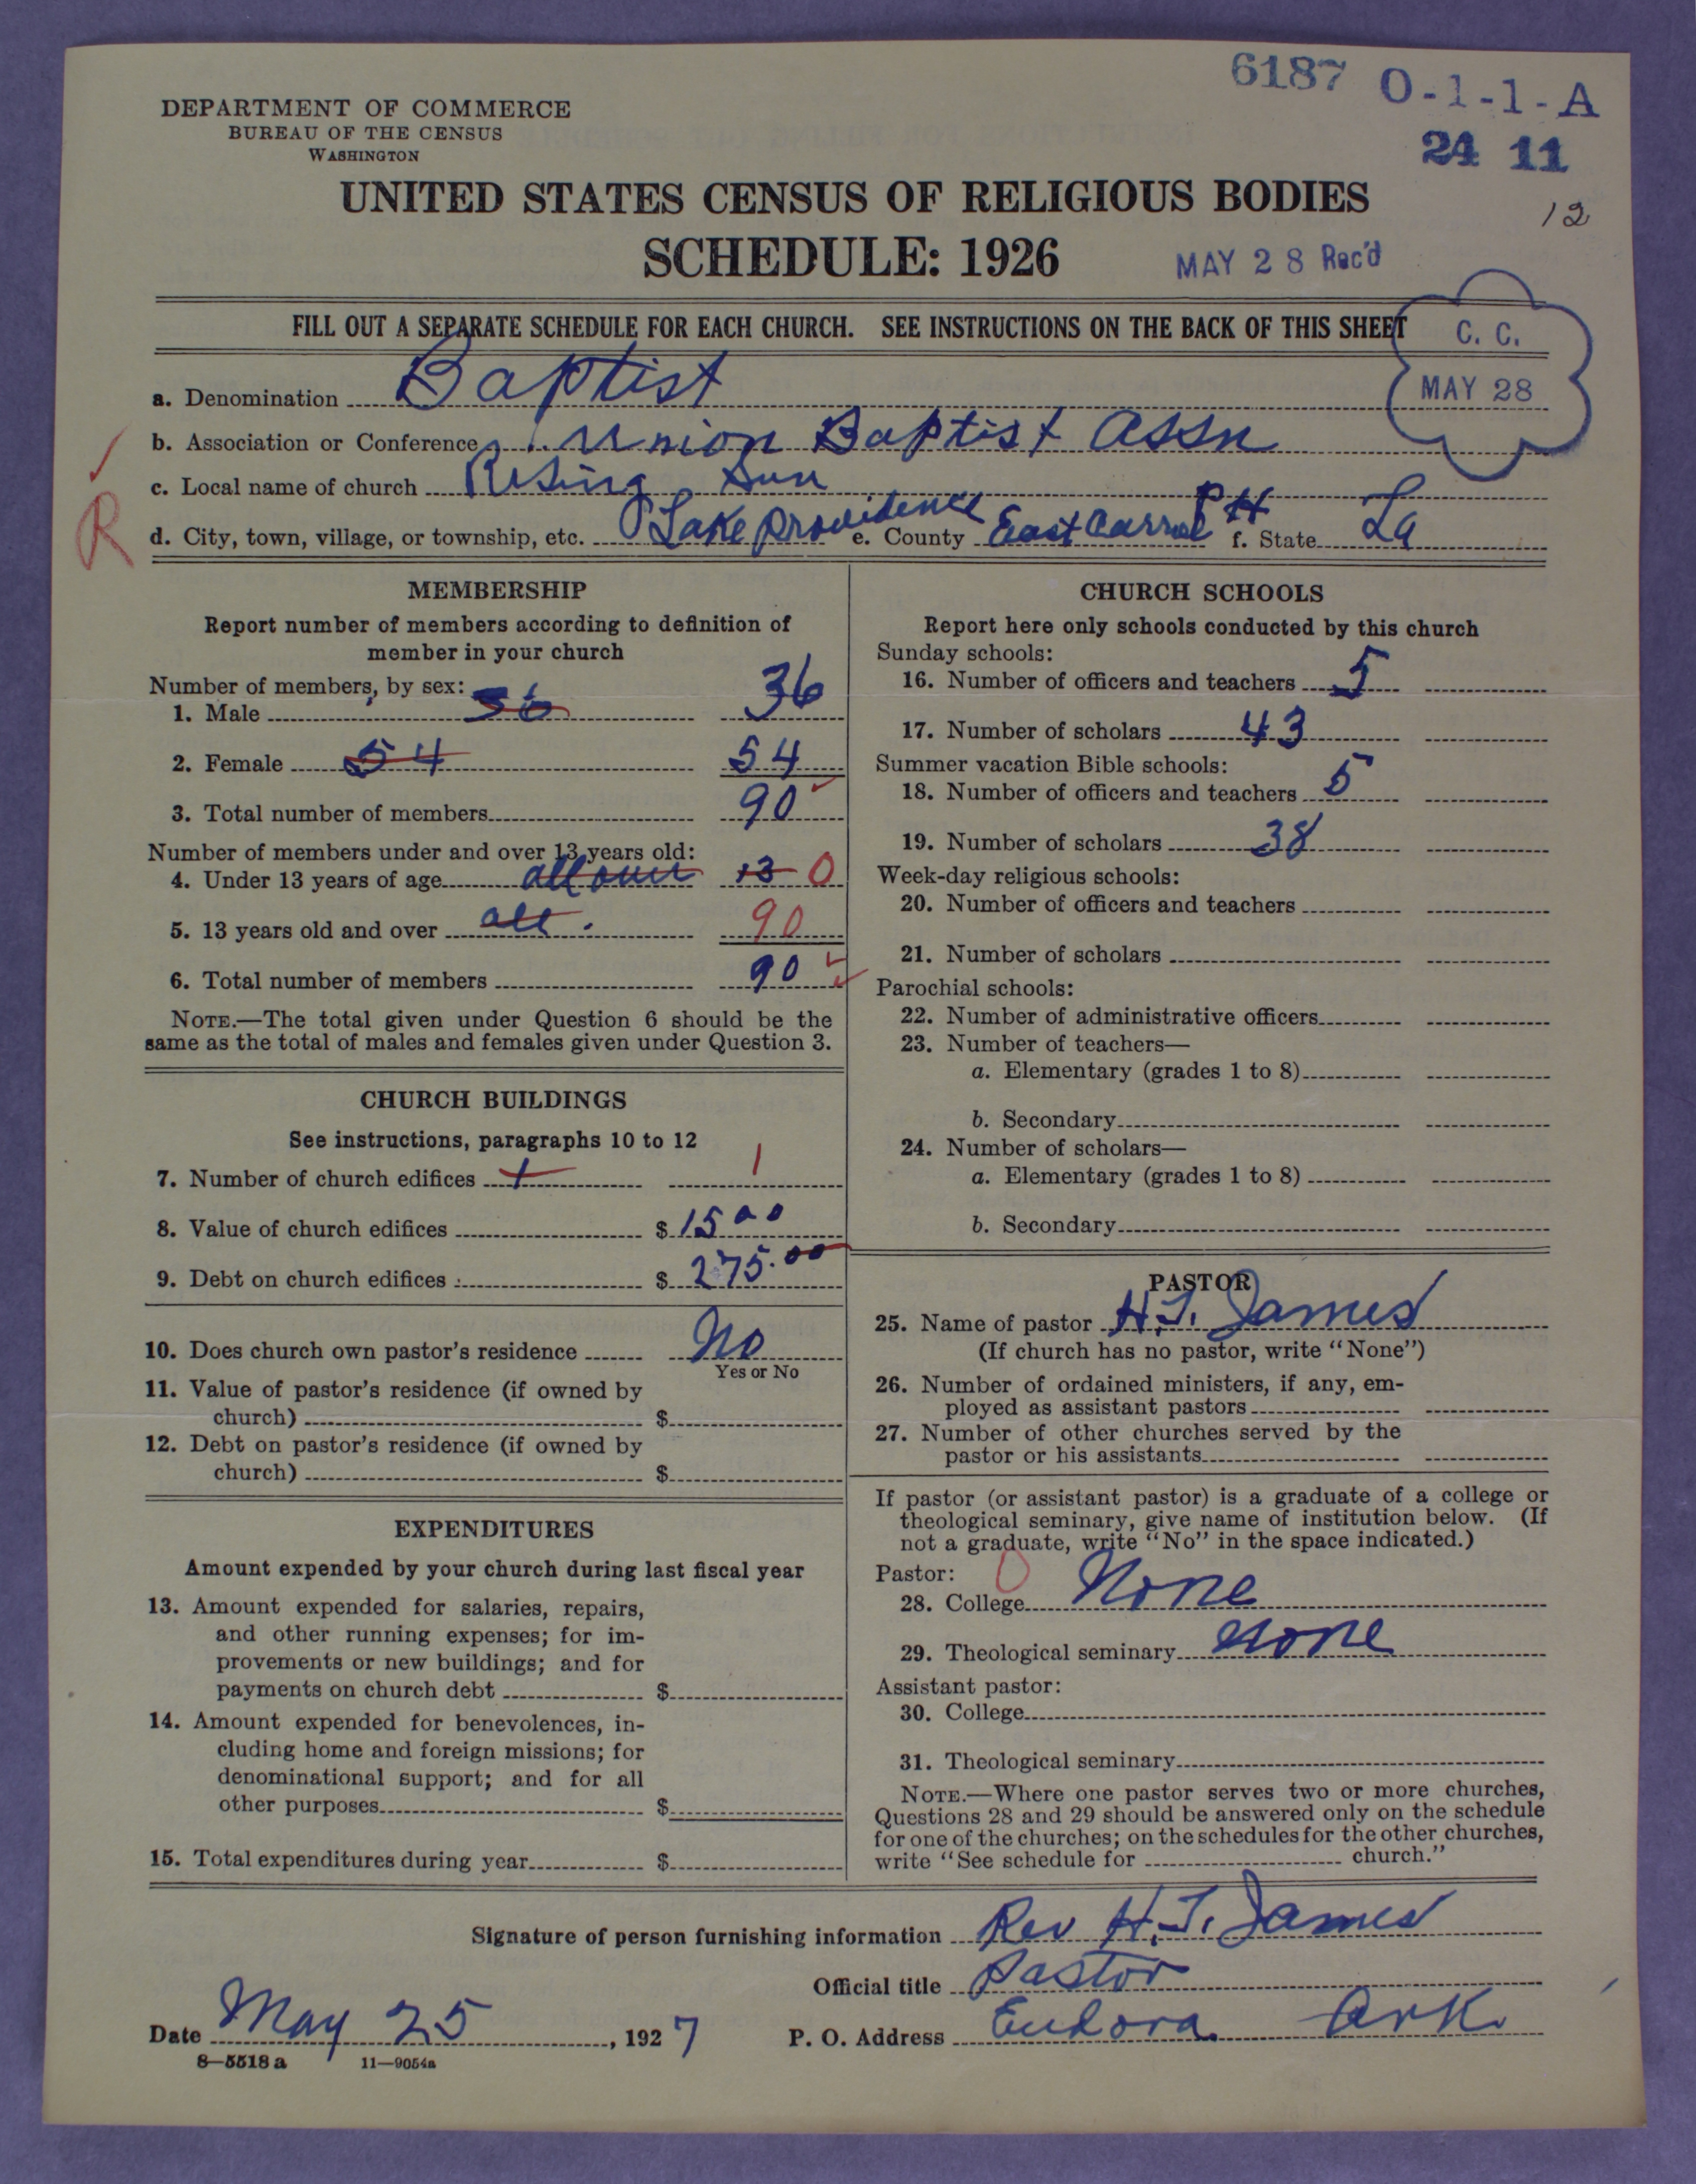 6187 O-1-1-A
24 11
12
DEPARTMENT OF COMMERCE
BUREAU OF THE CENSUS
WASHINGTON
UNITED STATES CENSUS OF RELIGIOUS BODIES
SCHEDULE: 1926
MAY 28 Rec'd
FILL OUT A SEPARATE SCHEDULE FOR EACH CHURCH. SEE INSTRUCTIONS ON THE BACK OF THIS SHEET
C. C.
MAY 28
a. Denomination Baptist
b. Association or Conference Union Baptist Assn
c. Local name of church Rising Sun
R
d. City, town, village, or township, etc. Lake Providence e. County East Carrol PH f. State La
MEMBERSHIP
Report number of members according to definition of
member in your church
Number of members, by sex:
1. Male 36 36
2. Female 54 54
3. Total number of members 90
Number of members under and over 13 years old:
4. Under 13 years of age all over 13 0
5. 13 years old and over all. 90
6. Total number of members 90
NOTE.—The total given under Question 6 should be the
same as the total of males and females given under Question 3.
CHURCH BUILDINGS
See instructions, paragraphs 10 to 12
7. Number of church edifices 1 1
8. Value of church edifices $ 1500
9. Debt on church edifices $ 275.00
10. Does church own pastor's residence No
Yes or No
11. Value of pastor's residence (if owned by
church) $
12. Debt on pastor's residence (if owned by
church) $
EXPENDITURES
Amount expended by your church during last fiscal year
13. Amount expended for salaries, repairs,
and other running expenses; for im-
provements or new buildings; and for
payments on church debt $
14. Amount expended for benevolences, in-
cluding home and foreign missions; for
denominational support; and for all
other purposes $
15. Total expenditures during year $
CHURCH SCHOOLS
Report here only schools conducted by this church
Sunday schools:
16. Number of officers and teachers 5
17. Number of scholars 43
Summer vacation Bible schools:
18. Number of officers and teachers 5
19. Number of scholars 38
Week-day religious schools:
20. Number of officers and teachers
21. Number of scholars
Parochial schools:
22. Number of administrative officers
23. Number of teachers—
a. Elementary (grades 1 to 8)
b. Secondary
24. Number of scholars—
a. Elementary (grades 1 to 8)
b. Secondary
PASTOR
25. Name of pastor H.J. James
(If church has no pastor, write "None")
26. Number of ordained ministers, if any, em-
ployed as assistant pastors
27. Number of other churches served by the
pastor or his assistants
If pastor (or assistant pastor) is a graduate of a college or
theological seminary, give name of institution below. (If
not a graduate, write "No" in the space indicated.)
Pastor: 0
28. College None
29. Theological seminary None
Assistant pastor:
30. College
31. Theological seminary
NOTE.—Where one pastor serves two or more churches,
Questions 28 and 29 should be answered only on the schedule
for one of the churches; on the schedules for the other churches,
write "See schedule for church."
Signature of person furnishing information Rev H.J. James
Official title Pastor
Date May 25, 1927 P. O. Address Eudora Ark.
8—5518 a 11—9054a